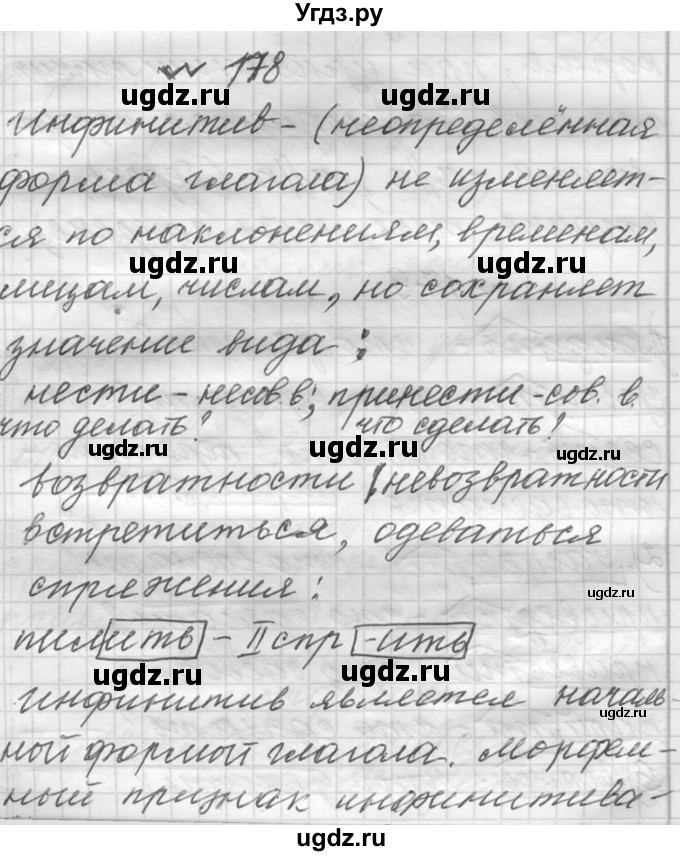 Угдз.ру
№ 178
ugdz.ru ugdz.ru
Инфинитив - (неопределённая
форма глагола) не изменяет-
ся по наклонениям, временам,
ugdz.ru ugdz.ru
лицам, числам, но сохраняет
значение вида:
нести - несов.в; принести - сов. в.
что делать? что сделать?
ugdz.ru ugdz.ru ugdz.ru
возвратности / невозвратности
встретиться, одеваться
спряжения:
ugdz.ru
пилить - II спр -ить
ugdz.ru ugdz.ru
Инфинитив является началь-
ugdz.ru
ной формой глагола. Морфем-
ный признак инфинитива -
ugdz.ru